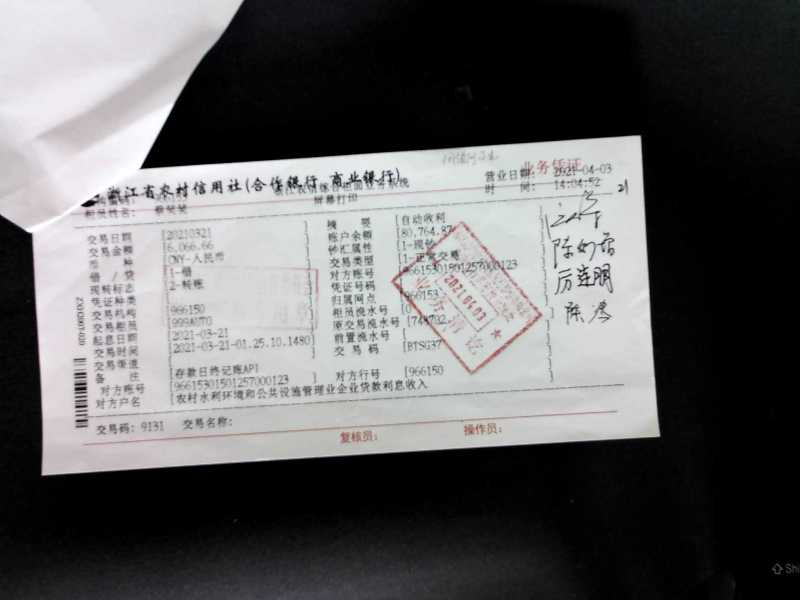 业务凭证
浙江省农村信用社(合作银行 商业银行)
营业日期: 2021-04-03
柜员姓名: 屏幕打印 时 间: 14:04:52
交易日期 [20210321 摘 要 [自动收利
交易金额 [6,066.66 账户余额 [80,764.87
币 种 [CNY-人民币 钞汇属性 [1-现钞
借 / 贷 [1-借 交易类型 [1-正常交易
现转标志 [2-转账 对方账号 [96615301501257000123
凭证种类 凭证号码
交易机构 [966150 归属网点 [966153
交易柜员 [999AUTO 柜员流水号 [0
起息日期 [2021-03-21 原交易流水号
交易时间 [2021-03-21-01.25.10.1480] 前置流水号
交易渠道 交 易 码 [BTSG37
备 注 [存款日终记账API
对方账号 [96615301501257000123 ] 对方行号 [966150
对方户名 [农村水利环境和公共设施管理业企业贷款利息收入
交易码: 9131 交易名称:
复核员: 操作员:
2021.04.03